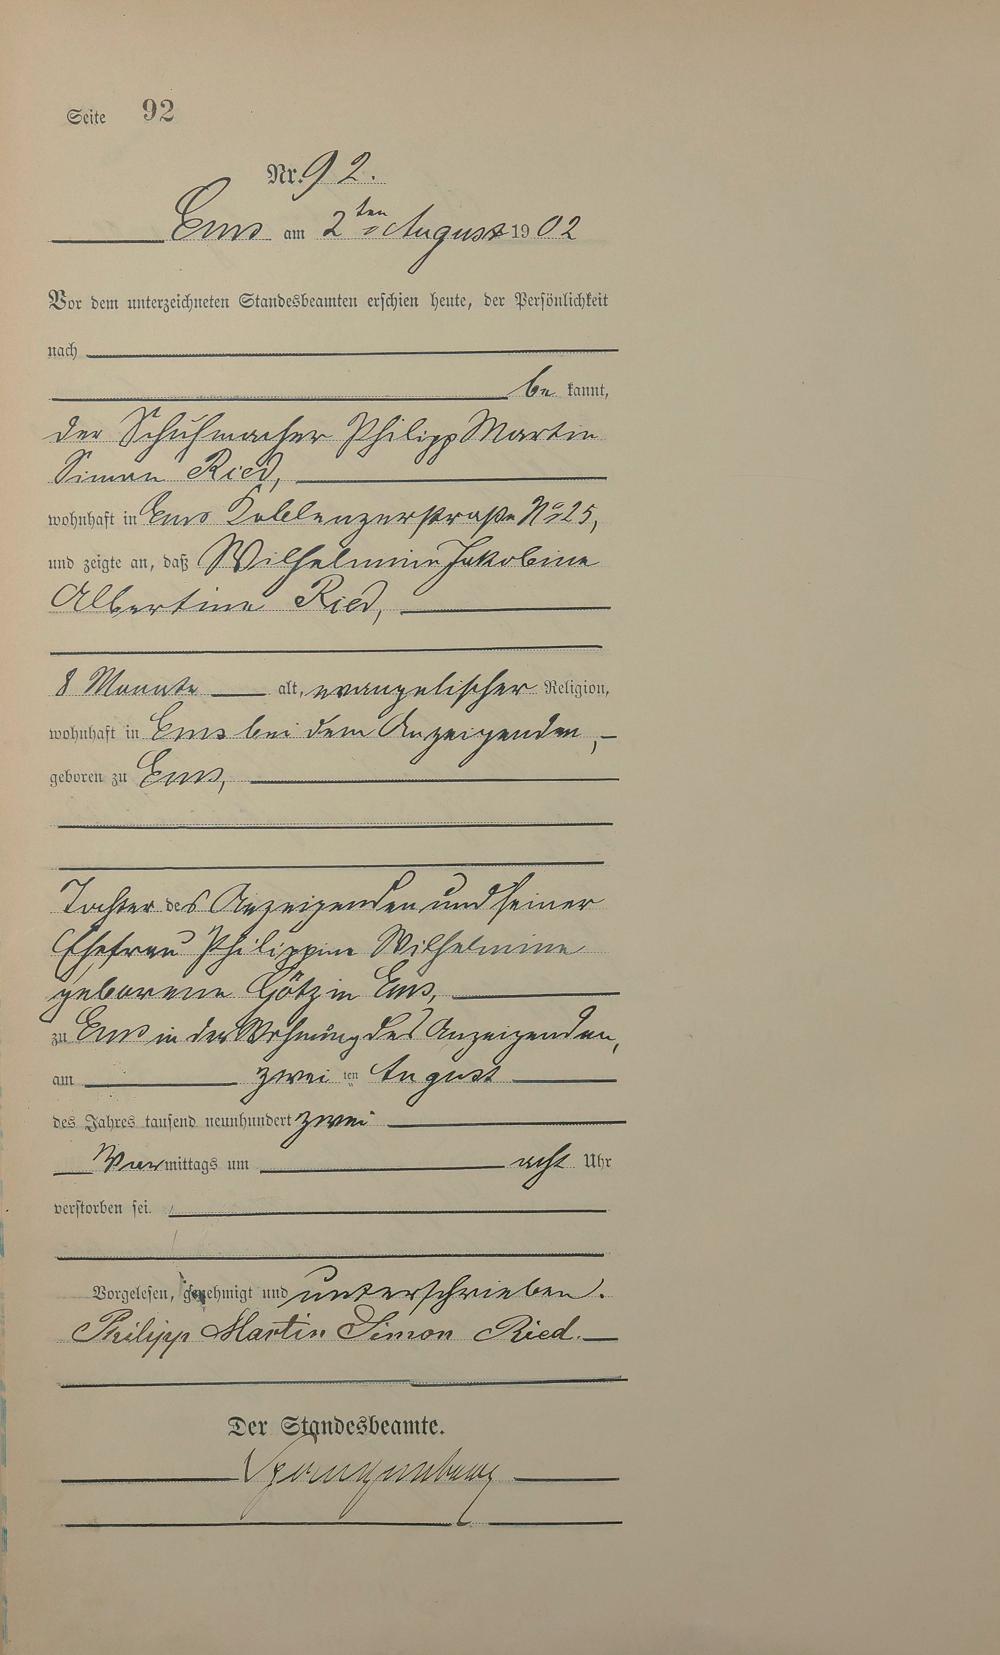 Seite 92
Nr. 92.
Ems am 2ten August 1902
Vor dem unterzeichneten Standesbeamten erschien heute, der Persönlichkeit
nach
be kannt,
der Schuhmacher Philipp Martin
Simon Ried,
wohnhaft in Ems Koblenzerstraße No 25,
und zeigte an, daß Wilhelmine Jakobine
Albertine Ried,
8 Monate alt, evangelischer Religion,
wohnhaft in Ems bei dem Anzeigenden,
geboren zu Ems,
Tochter des Anzeigenden und seiner
Ehefrau Philippine Wilhelmine
geborene Götz in Ems,
zu Ems in der Wohnung des Anzeigenden,
am zwei ten August
des Jahres tausend neunhundert zwei
Vor mittags um acht Uhr
verstorben sei.
Vorgelesen, genehmigt und unterschrieben.
Philipp Martin Simon Ried.
Der Standesbeamte.